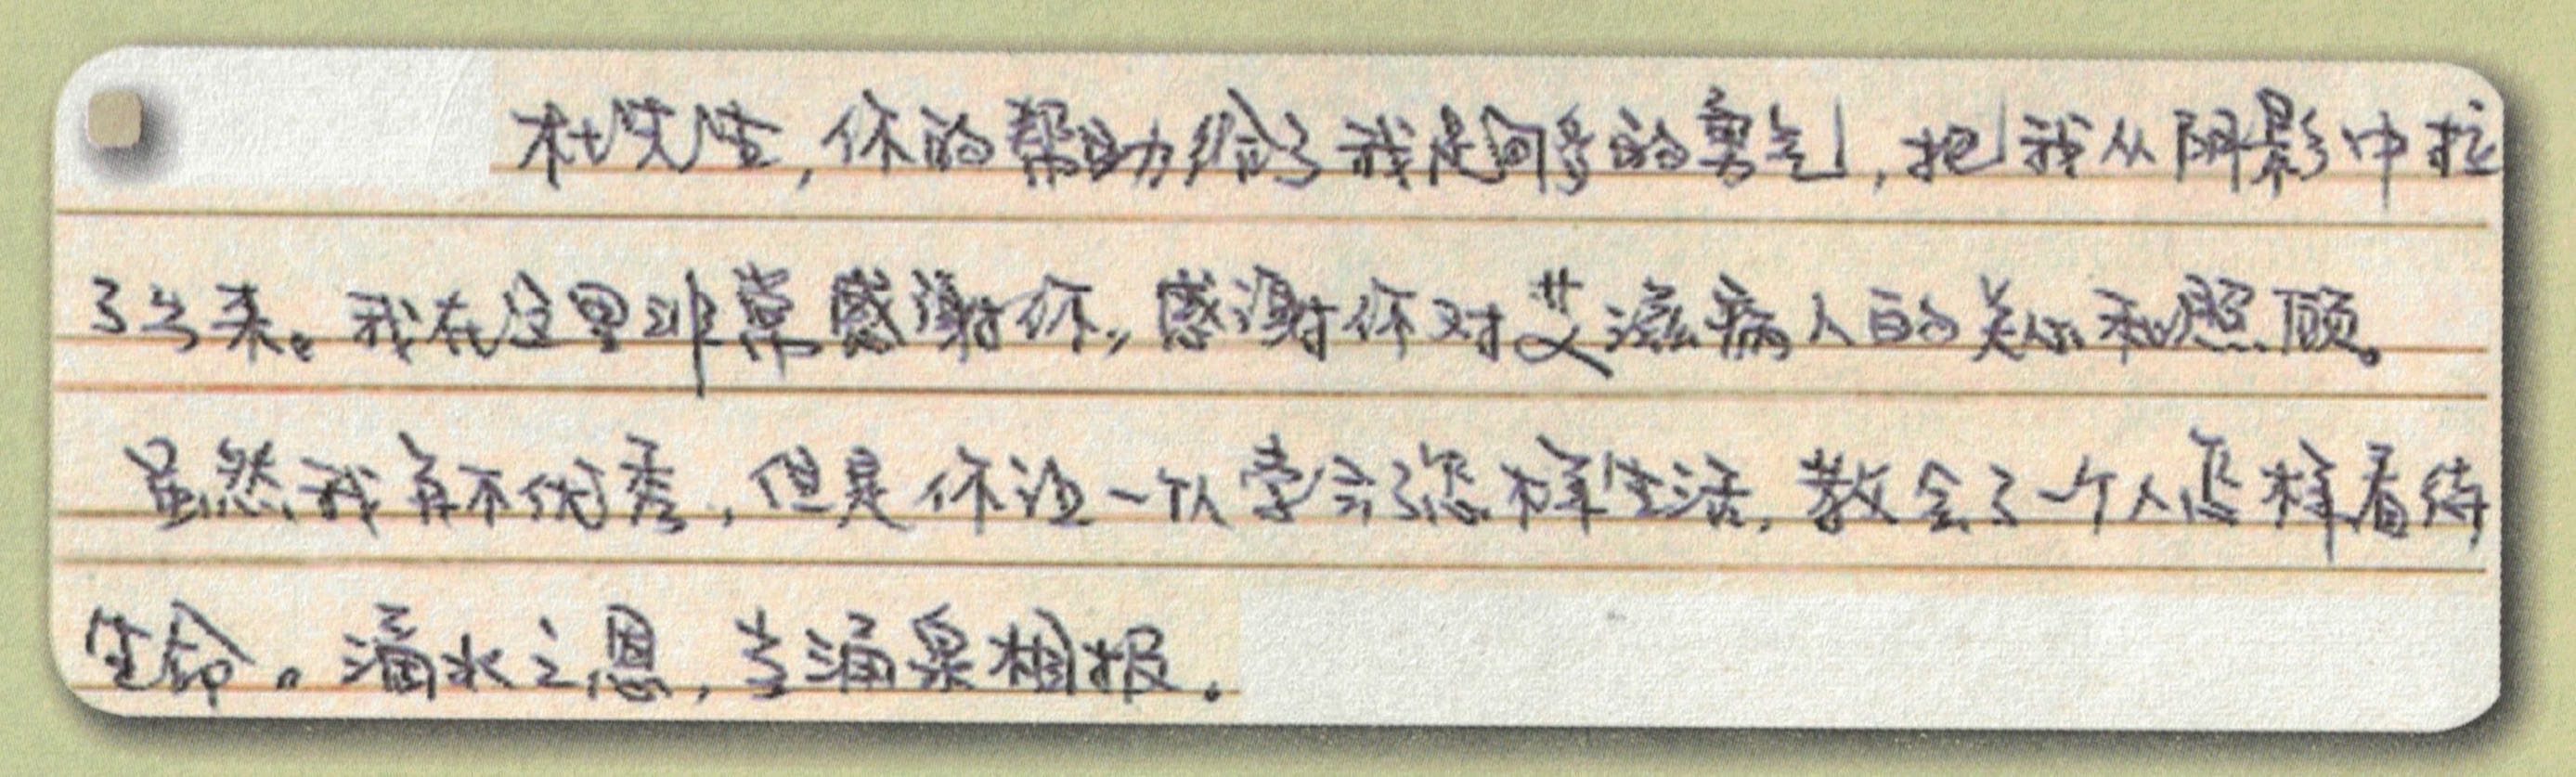 杜先生，你的帮助给了我是何等的勇气，把我从阴影中拉
了出来。我在这里非常感谢你，感谢你对艾滋病人的关心和照顾。
虽然我并不优秀，但是你让一个人学会了怎样生活，教会了一个人怎样看待
生命。滴水之恩，当涌泉相报。